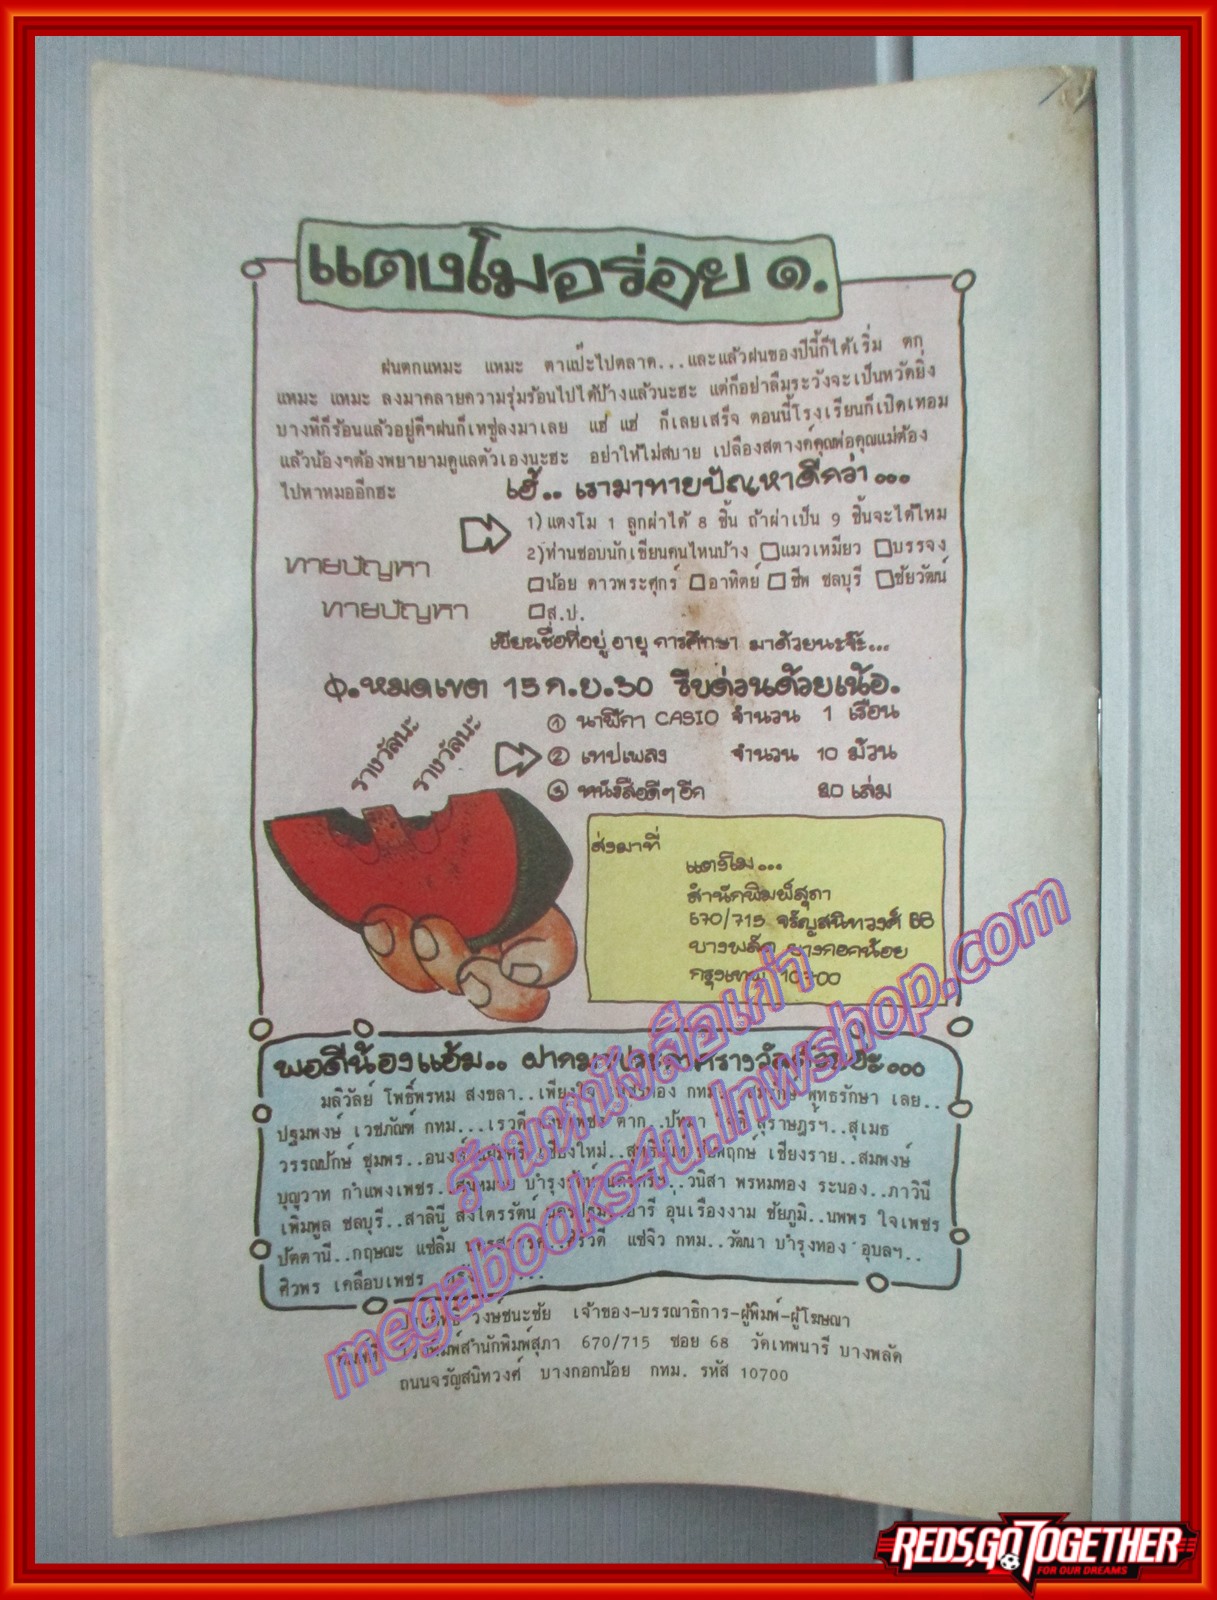 แตงโมอร่อย ๑.
ฝนตกแหมะ แหมะ ตาแป๊ะไปตลาด...และแล้วฝนของปีนี้ก็ได้เริ่ม ตก
แหมะ แหมะ ลงมาคลายความรุ่มร้อนไปได้บ้างแล้วนะฮะ แต่ก็อย่าลืมระวังจะเป็นหวัดยิ่ง
บางทีก็ร้อนแล้วอยู่ดีๆฝนก็เทซู่ลงมาเลย แฮ่ แฮ่ ก็เลยเสร็จ ตอนนี้โรงเรียนก็เปิดเทอม
แล้วน้องๆต้องพยายามดูแลตัวเองนะฮะ อย่าให้ไม่สบาย เปลืองสตางค์คุณพ่อคุณแม่ต้อง
ไปหาหมออีกฮะ
เฮ้.. เรามาทายปัญหาดีกว่า...
1) แตงโม 1 ลูกผ่าได้ 8 ชิ้น ถ้าผ่าเป็น 9 ชิ้นจะได้ไหม
2)ท่านชอบนักเขียนคนไหนบ้าง □แมวเหมียว □บรรจง
ทายปัญหา
□น้อย ดาวพระศุกร์ □อาทิตย์ □ชีพ ชลบุรี □ชัยวัฒน์
ทายปัญหา
□ส.ป.
เขียนชื่อที่อยู่ อายุ การศึกษา มาด้วยนะจ๊ะ...
หมดเขต 15 ก.ย.30 รีบด่วนด้วยเน้อ.
รางวัลนะ รางวัลนะ
① นาฬิกา CASIO จำนวน 1 เรือน
② เทปเพลง จำนวน 10 ม้วน
③ หนังสือดีๆ อีก 20 เล่ม
ส่งมาที่
แตงโม...
สำนักพิมพ์สุภา
670/715 จรัญสนิทวงศ์ 68
บางพลัด บางกอกน้อย
กรุงเทพ 10700
พอดีน้องแอ้ม..
มลิวัลย์ โพธิ์พรหม สงขลา..เพียงใจ กทม. พุทธรักษา เลย..
ปฐมพงษ์ เวชภัณฑ์ กทม...เรวดี ตาก..ปัทมา สุราษฎร์ฯ..สุเมธ
วรรณปักษ์ ชุมพร..อนงค์ เชียงใหม่.. เชียงราย..สมพงษ์
บุญวาท กำแพงเพชร.. บำรุง ..วนิสา พรหมทอง ระนอง..ภาวินี
เพิ่มพูล ชลบุรี..สาลินี ส่งไตรรัตน์ นครปฐม.. อุ่นเรืองงาม ชัยภูมิ..นพพร ใจเพชร
ปัตตานี..กฤษณะ แซ่ลิ้ม แซ่จิว กทม..วัฒนา บำรุงทอง อุบลฯ..
ศิวพร เคลือบเพชร
วงษ์ชนะชัย เจ้าของ-บรรณาธิการ-ผู้พิมพ์-ผู้โฆษณา
พิมพ์ที่ โรงพิมพ์สำนักพิมพ์สุภา 670/715 ซอย 68 วัดเทพนารี บางพลัด
ถนนจรัญสนิทวงศ์ บางกอกน้อย กทม. รหัส 10700
ร้านหนังสือเก่า
megabooks4u.lnwshop.com
REDS,GO TOGETHER
FOR OUR DREAMS